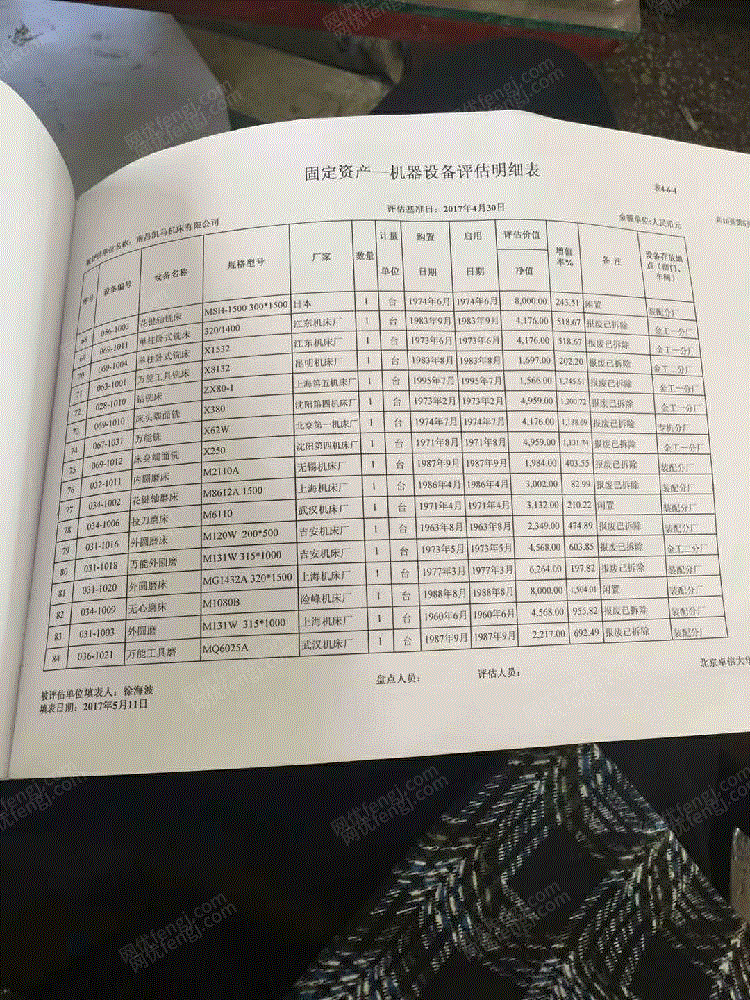 固定资产—机器设备评估明细表
表4-6-4
评估基准日:2017年4月30日
被评估单位名称:南昌凯马机床有限公司
金额单位:人民币元
序号 设备编号 设备名称 规格型号 厂家 数量 计量单位 购置日期 启用日期 评估价值 净值 增值率% 备注 设备存放地点(部门、车间)
036-1005 花键铣床 MSH-1500 300*1500 日本 1 台 1974年6月 1974年6月 8,000.00 243.51 闲置 装配分厂
69 066-1011 单柱卧式铣床 320/1400 江东机床厂 1 台 1983年9月 1983年9月 4,176.00 518.67 报废已拆除 金工一分厂
70 060-1004 单柱卧式铣床 X1532 江东机床厂 1 台 1973年6月 1973年6月 4,176.00 518.67 报废已拆除
71 063-1001 万能工具铣床 X8132 昆明机床厂 1 台 1983年8月 1983年8月 1,697.00 202.20 报废已拆除 金工一分厂
72 028-1010 钻铣床 ZX80-1 上海第五机床厂 1 台 1995年7月 1995年7月 1,566.00 报废已拆除
73 069-1010 床头端面铣 X380 沈阳第四机床厂 1 台 1973年2月 1973年2月 4,959.00 报废已拆除 金工一分厂
74 067-1037 万能铣 X62W 北京第一机床厂 1 台 1974年7月 1974年7月 4,176.00 报废已拆除 专机分厂
75 069-1012 床身端面铣 X250 沈阳第四机床厂 1 台 1971年8月 1971年8月 4,959.00 报废已拆除 金工一分厂
76 032-1011 内圆磨床 M2110A 无锡机床厂 1 台 1987年9月 1987年9月 1,984.00 403.55 报废已拆除 装配分厂
77 034-1002 花键轴磨床 M8612A 1500 上海机床厂 1 台 1986年4月 1986年4月 3,002.00 82.99 报废已拆除 装配分厂
78 034-1006 拉刀磨床 M6110 武汉机床厂 1 台 1971年4月 1971年4月 3,132.00 210.22 闲置 装配分厂
79 031-1016 外圆磨床 M120W 200*500 吉安机床厂 1 台 1963年8月 1963年8月 2,349.00 474.89 报废已拆除 装配分厂
80 031-1018 万能外圆磨 M131W 315*1000 吉安机床厂 1 台 1973年5月 1973年5月 4,568.00 603.85 报废已拆除 金工二分厂
81 031-1020 外圆磨床 MG1432A 320*1500 上海机床厂 1 台 1977年3月 1977年3月 6,264.00 197.82 报废已拆除 装配分厂
82 034-1009 无心磨床 M1080B 险峰机床厂 1 台 1988年8月 1988年8月 8,000.00 1,504.01 闲置 装配分厂
83 031-1003 外圆磨 M131W 315*1000 上海机床厂 1 台 1960年6月 1960年6月 4,568.00 955.82 报废已拆除 装配分厂
84 036-1021 万能工具磨 MQ6025A 武汉机床厂 1 台 1987年9月 1987年9月 2,217.00 692.49 报废已拆除 装配分厂
被评估单位填表人:徐海波 盘点人员: 评估人员: 北京卓信大华
填表日期:2017年5月11日
网优fengj.com